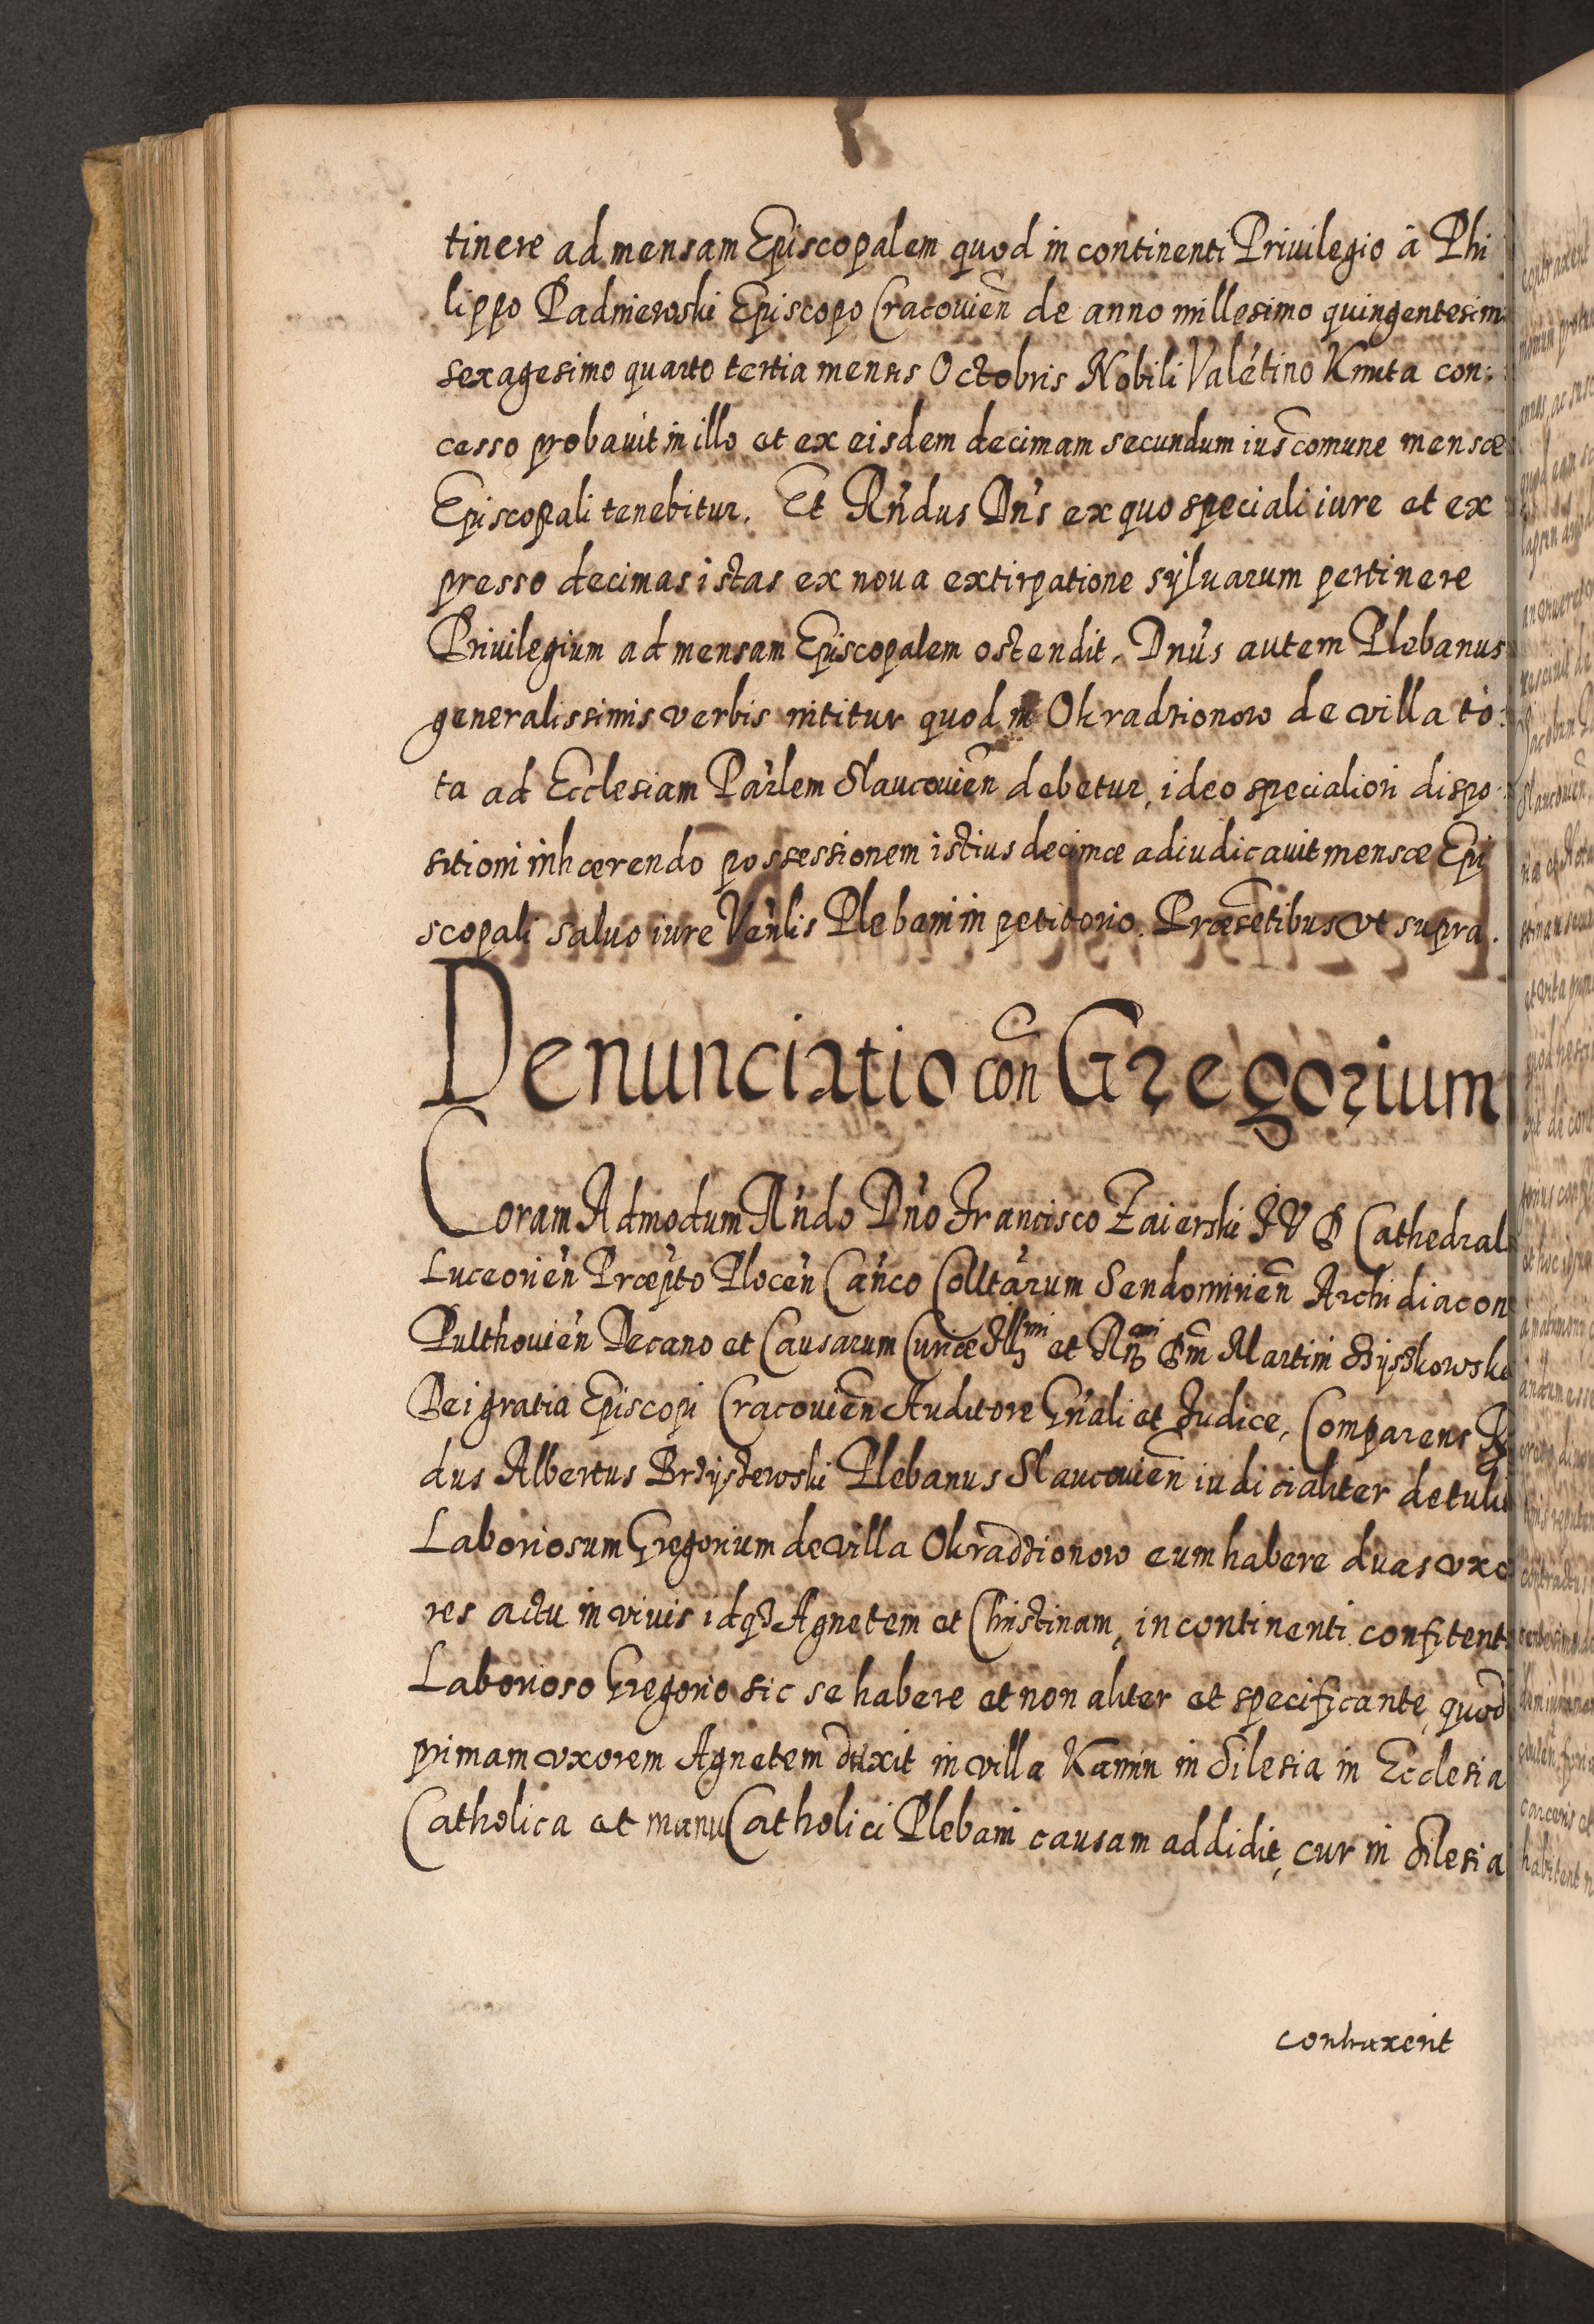 tinere ad mensam Episcopalem quod in continenti Priuilegio â Phi
lippo Padniewski Episcopo Cracouien̄ de anno millesimo quingentesim
sexagesimo quarto tertia mensis Octobris Nobili Valētino Kmita con:
cesso probauit in illo et ex eisdem decimam secundum ius com̄une mensæ
Episcopali tenebitur. Et Rn̄dus Dn̄s ex quo speciali iure et ex
presso decimas istas ex noua extirpatione sÿluarum pertinere
Priuilegium ad mensam Episcopalem ostendit. Dnūs autem Plebanus
generalissimis verbis nititur quod in Okradzionow de villa to:
ta ad Ecclesiam Par̄lem Slaucouien̄ debetur, ideo specialiori dispo:
sitioni inhærendo possessionem istius decimæ adiudicauit mensæ Epi
scopali saluo iure Ven̄lis Plebani in petitorio. Præsētibus vt supra.
Denunciatio con̄ Gregorium
Coram Admodum Rn̄do Dn̄o Francisco Zaierski I V D Cathedral
Luceorien̄ Præp̄to Plocen̄ Can̄co Colltārum Sendomirien̄ Archidiacon
Pulthouien̄ Decano et Causarum Curiæ Ill͞mi et Rn͞di Dm̄ Martini Szyszkowski
Dei gratia Episcopi Cracouien̄ Auditore Gn̄ali et Iudice, Comparens R
dus Albertus Brzyszewski Plebanus Slaucouien̄ iudicialiter detulit
Laboriosum Gregorium de villa Okradzionow eum habere duas vxo
res actu in viuis idqʒ Agnetem et Christinam, in continenti confitent
Laborioso Gregorio sic se habere et non aliter et specificante, quod
primam vxorem Agnetem duxit in villa Kamin in Silesia in Ecclesia
Catholica et manu Catholici Plebani causam addidit, cur in Silesia
contraxerit